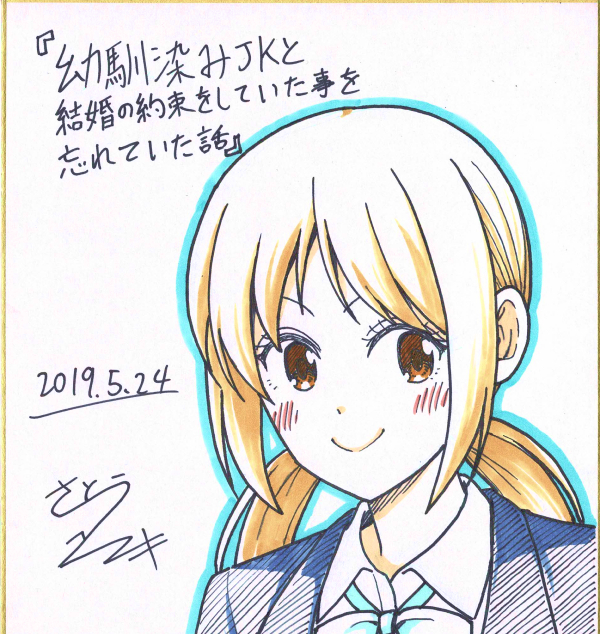 『幼馴染みJKと
結婚の約束をしていた事を
忘れていた話』
2019.5.24
さとう
ユーキ